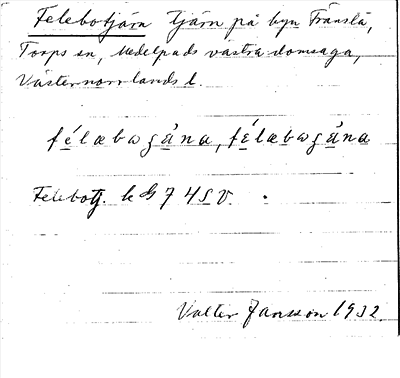 Felebotjärn Tjärn på byn Fränsta,
Torps sn, Medelpads västra domsaga,
Västernorrlands l.
Felebotj. k G 7 4 S V.
Valter Jansson 1932.